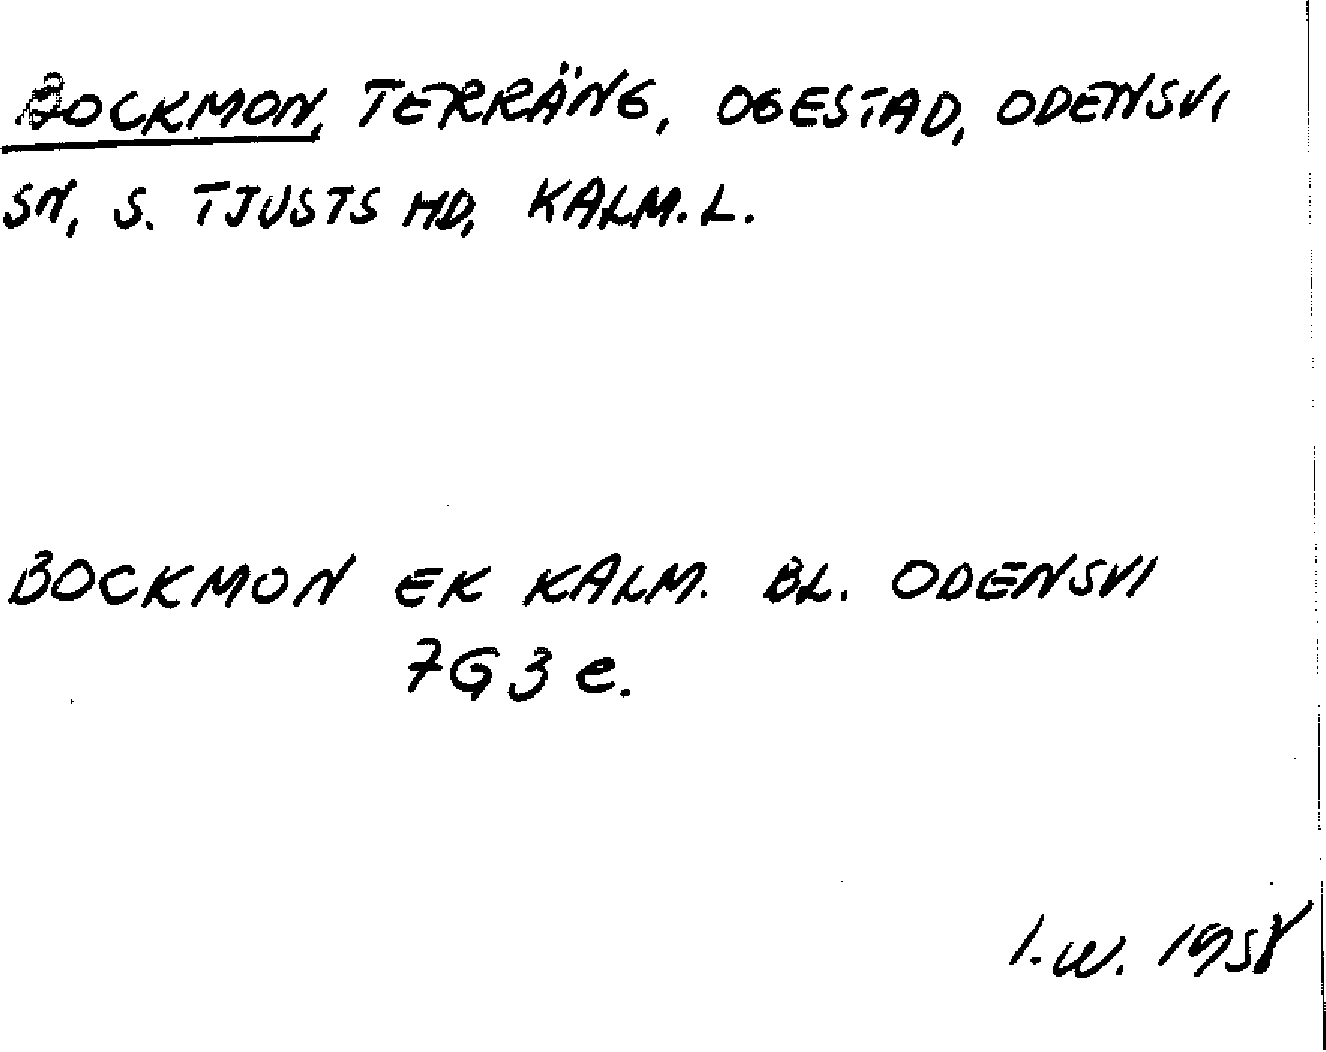 BOCKMON, TERRÄNG, OGESTAD, ODENSVI
SN, S. TJUSTS HD, KALM. L.
BOCKMON EK KALM. BL. ODENSVI
7G3e.
I.W. 1958